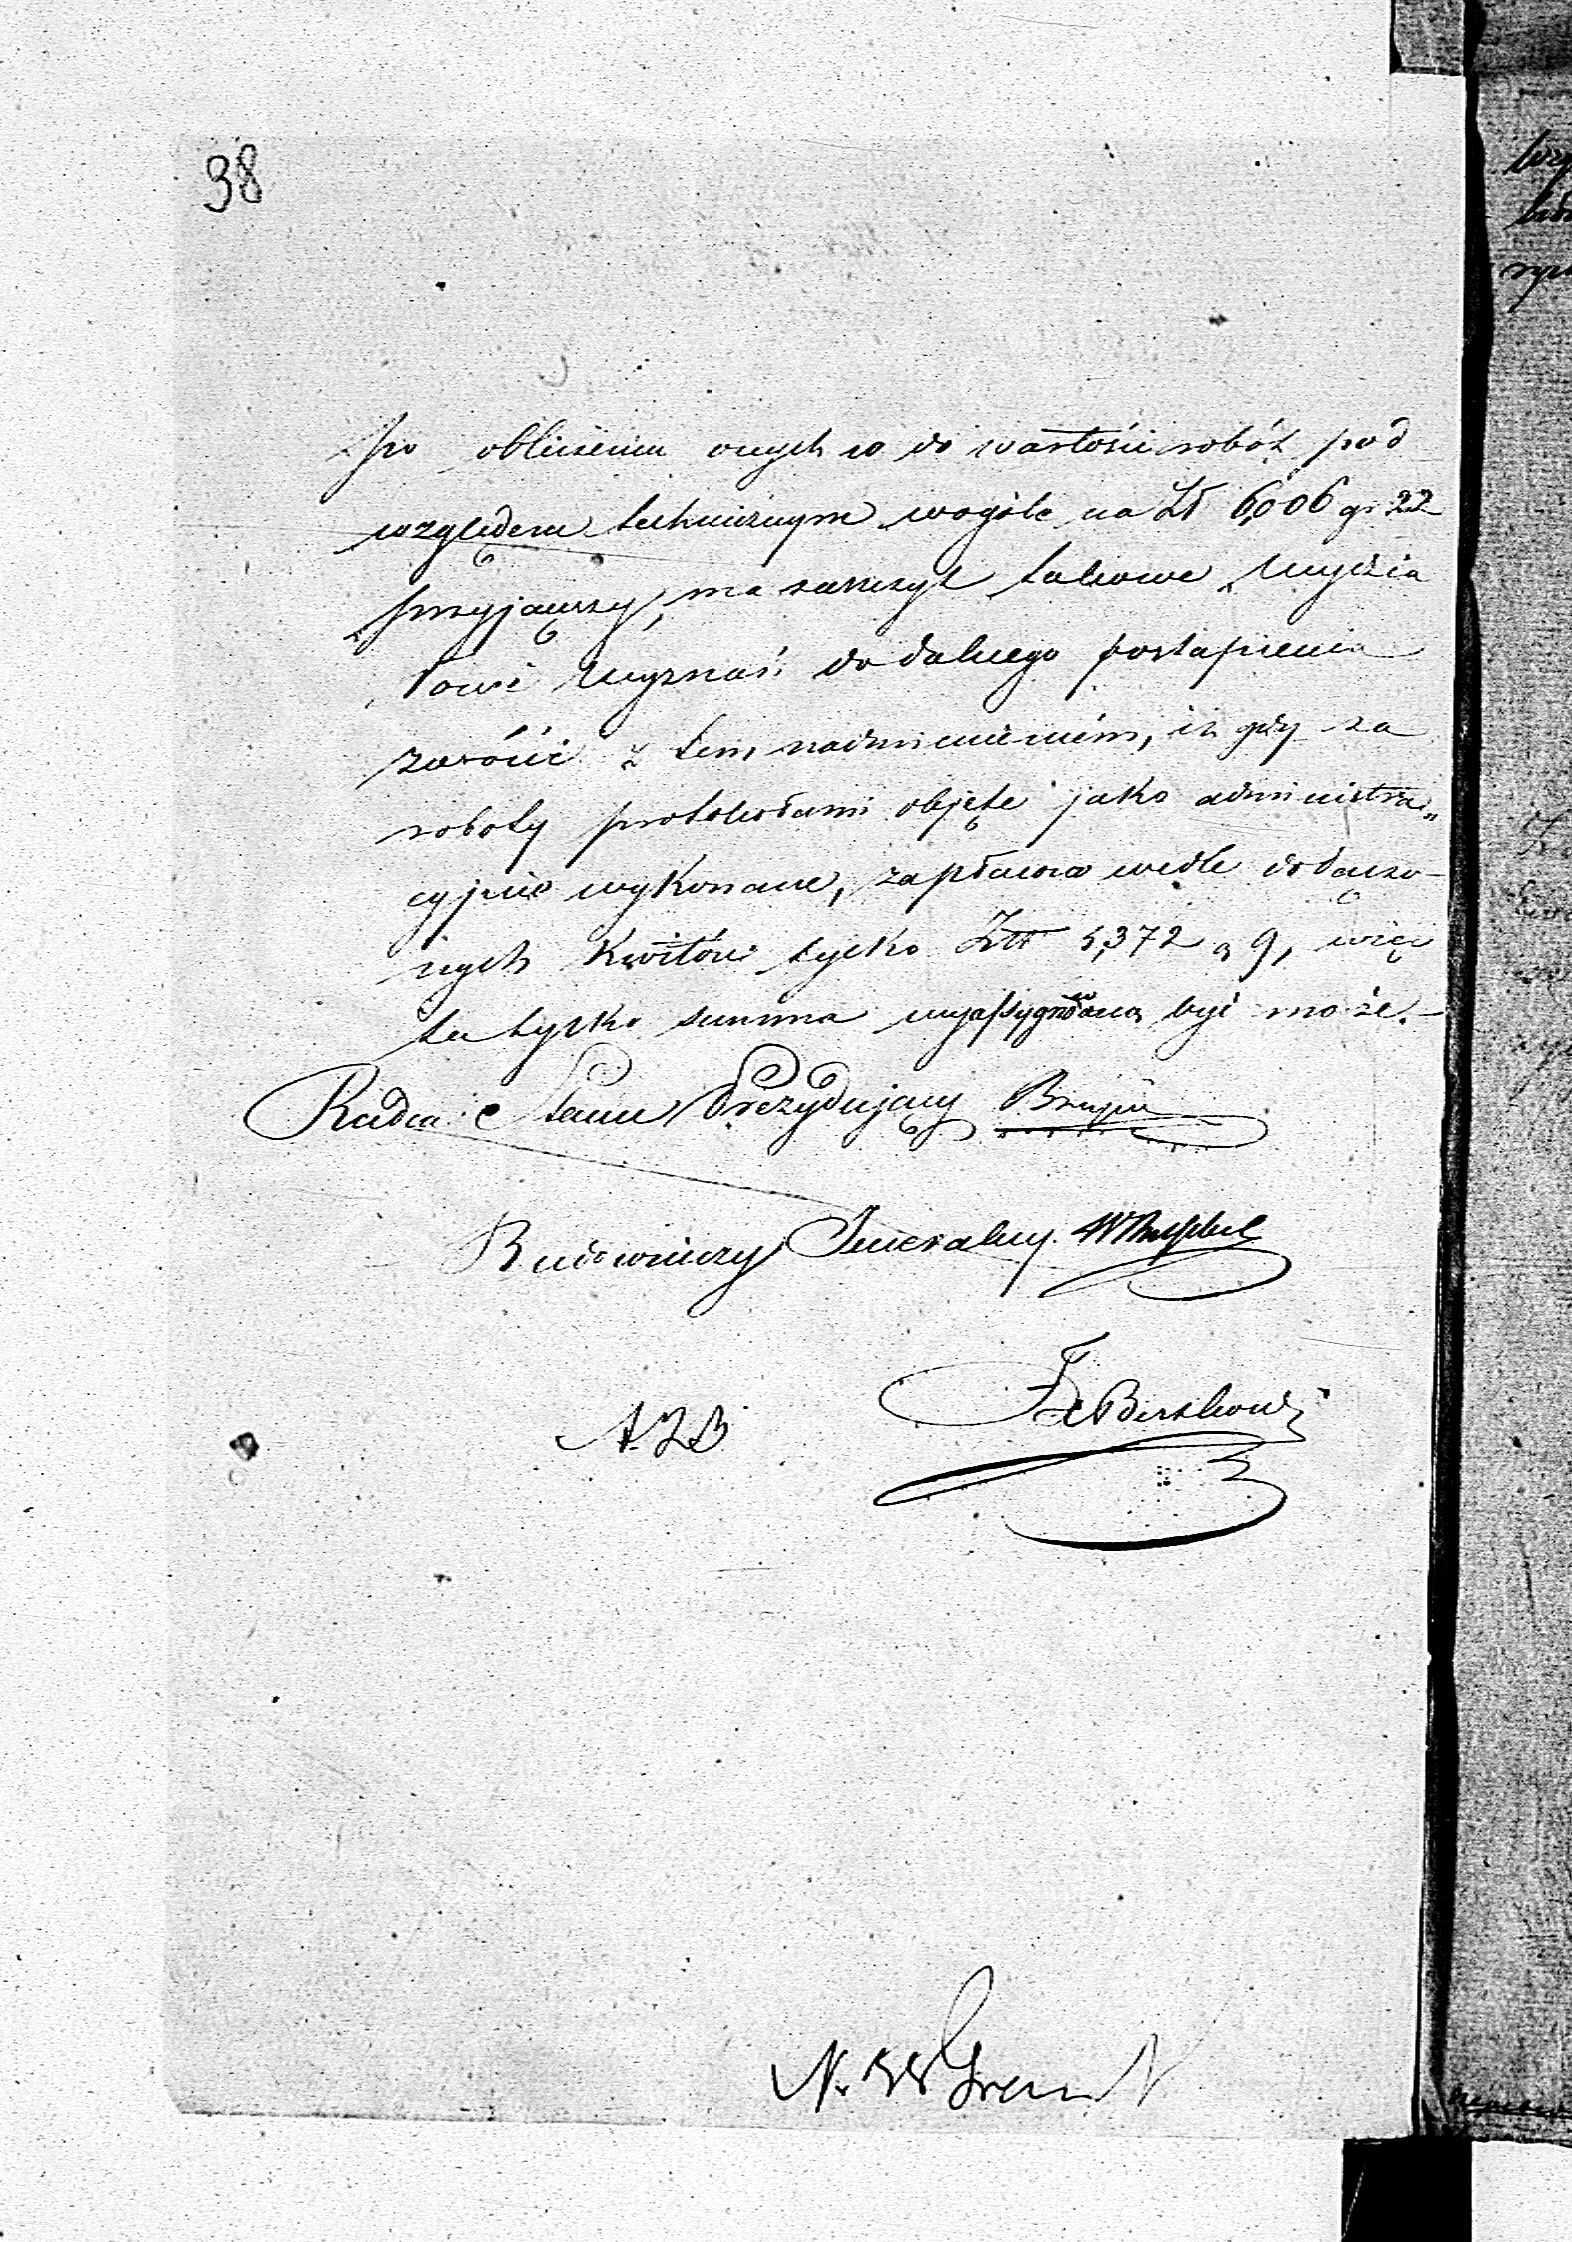 98
po obliczeniu onych co do wartości robót pod
względem technicznym wogóle na Zł 6,006 gr 22
przyjąwszy, ma zaszczyt takowe Wydzia
łowi Wyznań do dalszego postąpienia
zwrócić z tem nadmienieniém, iż gdy za
roboty protokołami objęte jako administra„
cyjnie wykonane, zapłacono wedle dołączo-
nych Kwitów tylko Złł 5,372 g 9, więc
ta tylko summa wyassygnowaną być może.-
Radca Stanu Prezydujący
Budowniczy Jeneralny.